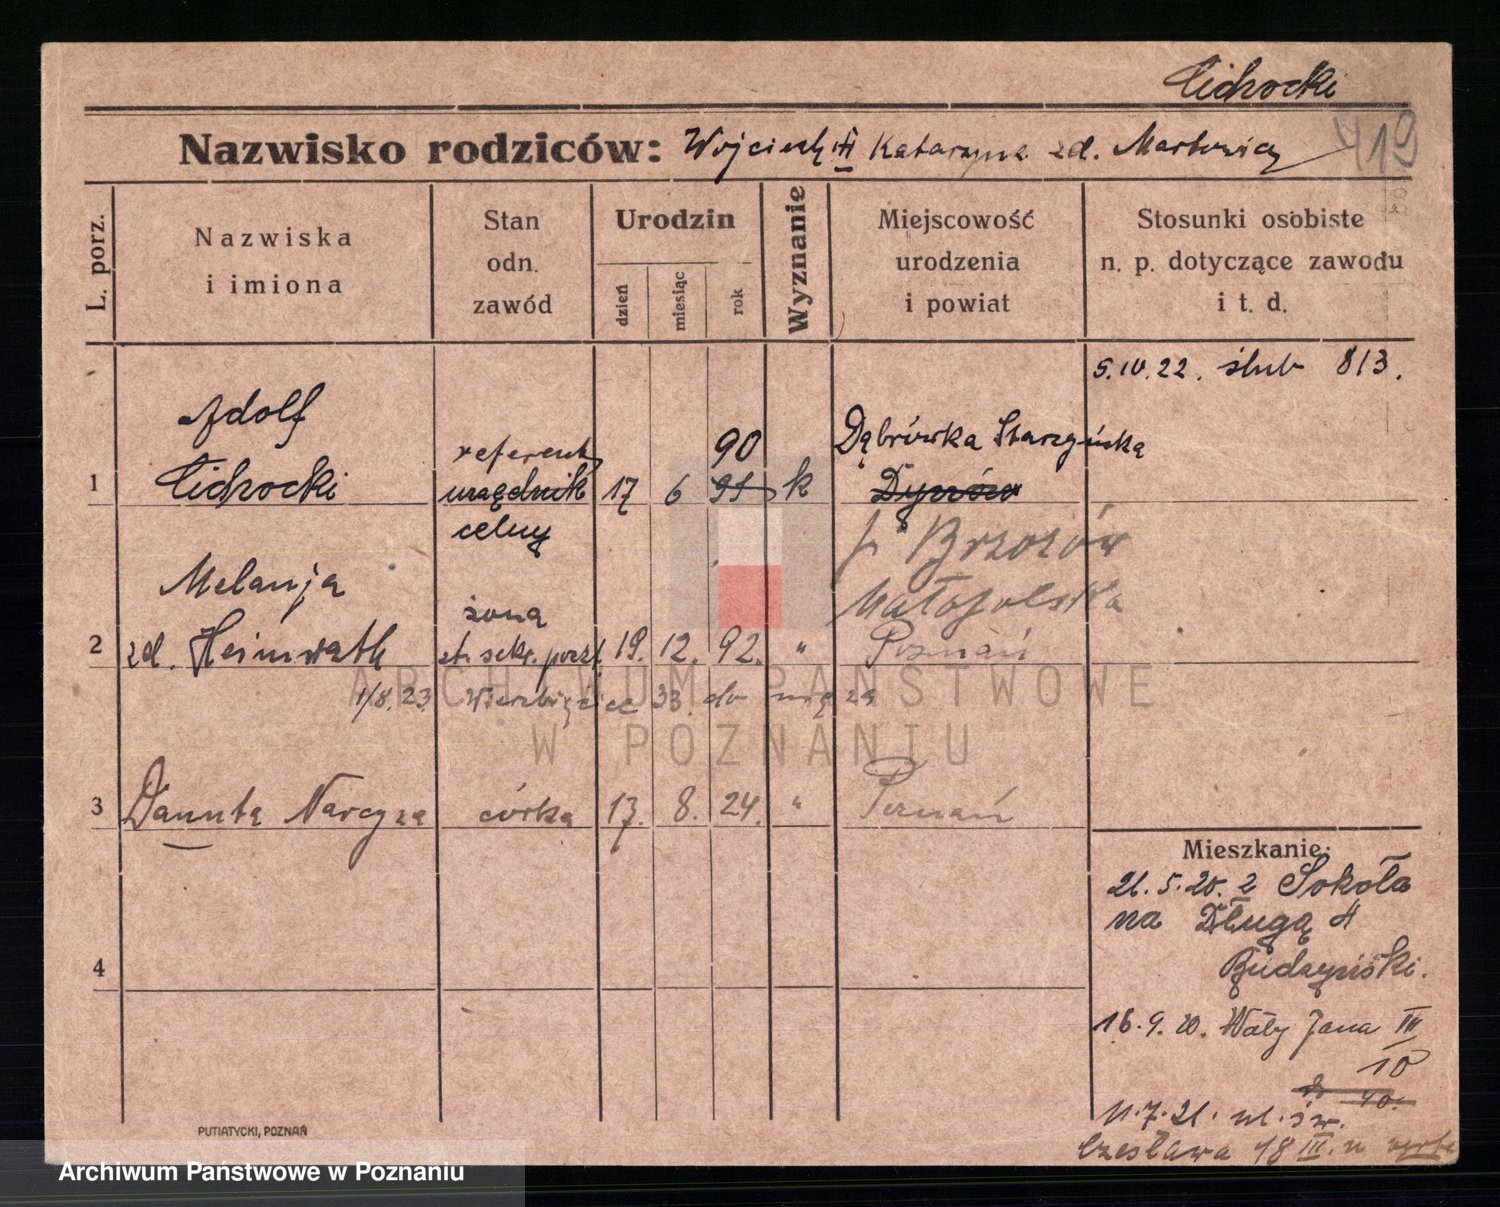 Cichocki
419
Nazwisko rodziców: Wojciech i Katarzyna zd. Markowicz
L. porz.
Nazwiska
i imiona
Stan
odn.
zawód
Urodzin
dzień
miesiąc
rok
Wyznanie
Miejscowość
urodzenia
i powiat
Stosunki osobiste
n. p. dotyczące zawodu
i t. d.
5.IV.22. ślub 813.
Adolf
referent 90 Dąbrówka Starzyńska
1 Cichocki urzędnik 17 6 91 k
celny
p. Brzozów
Małopolska
Melanja
żona
2 zd. Heinrath st. sekr. poczt. 19. 12. 92. " Poznań
1/8.23. Wierzbięcice 33. do męża
3 Danuta Narcyza córka 17. 8. 24. " Poznań
Mieszkanie:
21.5.20. 2 Sokoła
na Długą 4
Budzyński.
4
16.9.20. Wały Jana III
10
40.
11.7.21. ul. św.
Czesława 18 III. u
PUTIATYCKI, POZNAŃ
ARCHIWUM PAŃSTWOWE
W POZNANIU
Archiwum Państwowe w Poznaniu